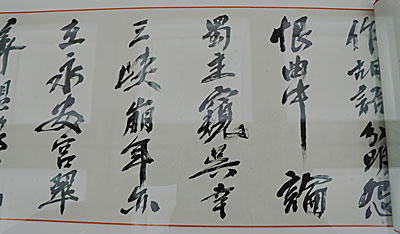 作胡語分明怨
恨曲中論
蜀主窺吳幸
三峽崩年亦
在永安宮翠